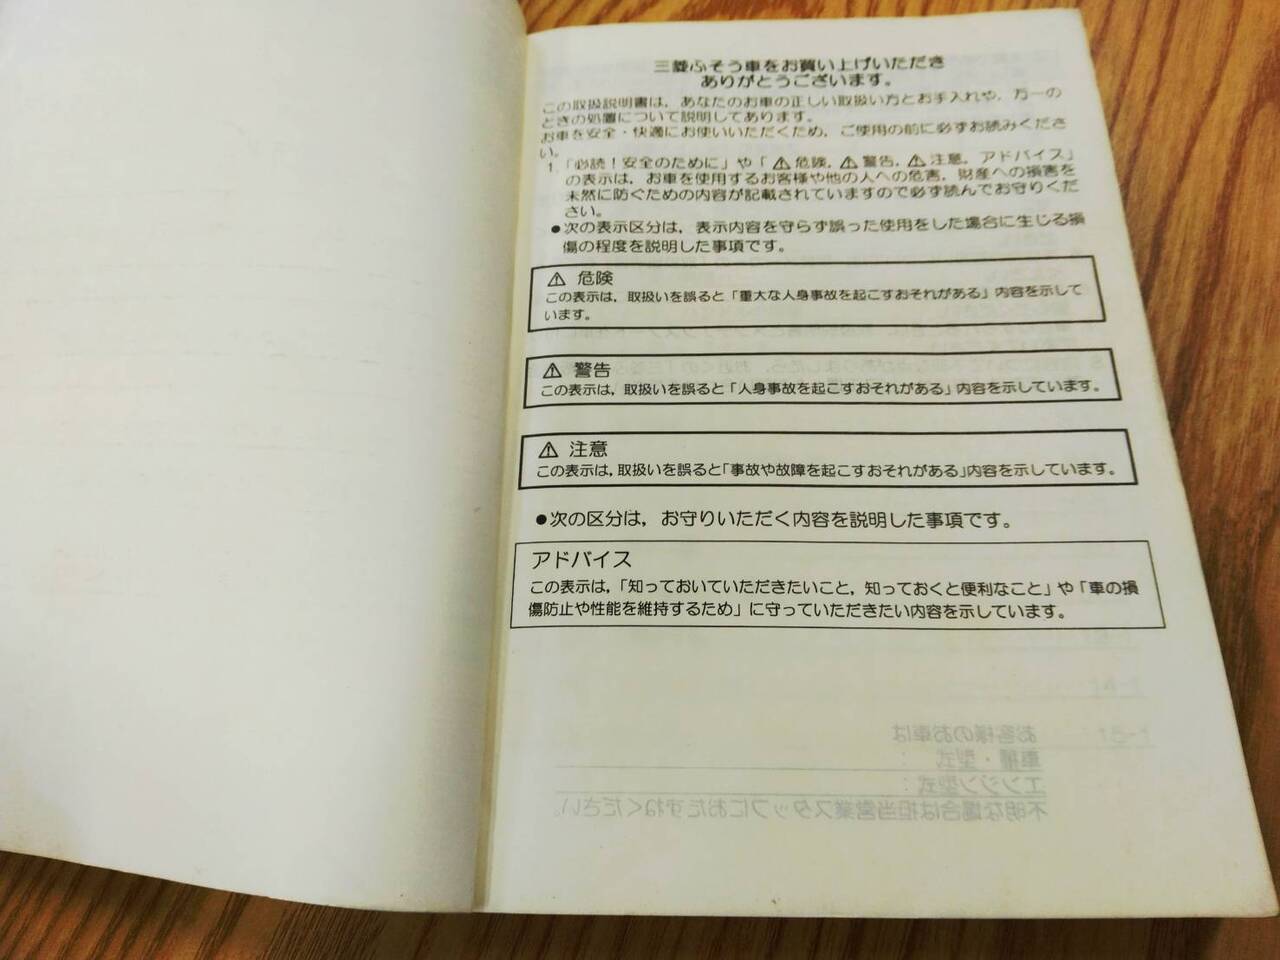 三菱ふそう車をお買い上げいただき
ありがとうございます。
この取扱説明書は，あなたのお車の正しい取扱い方とお手入れや，万一の
ときの処置について説明してあります。
お車を安全・快適にお使いいただくため，ご使用の前に必ずお読みくださ
い。
1．「必読！安全のために」や「⚠危険，⚠警告，⚠注意，アドバイス」
の表示は，お車を使用するお客様や他の人への危害，財産への損害を
未然に防ぐための内容が記載されていますので必ず読んでお守りくだ
さい。
●次の表示区分は，表示内容を守らず誤った使用をした場合に生じる損
傷の程度を説明した事項です。
⚠ 危険
この表示は，取扱いを誤ると「重大な人身事故を起こすおそれがある」内容を示して
います。
⚠ 警告
この表示は，取扱いを誤ると「人身事故を起こすおそれがある」内容を示しています。
⚠ 注意
この表示は，取扱いを誤ると「事故や故障を起こすおそれがある」内容を示しています。
●次の区分は，お守りいただく内容を説明した事項です。
アドバイス
この表示は，「知っておいていただきたいこと，知っておくと便利なこと」や「車の損
傷防止や性能を維持するため」に守っていただきたい内容を示しています。
お客様のお車は
車種・型式　：
エンジン型式：
不明な場合は担当営業スタッフにおたずねください。